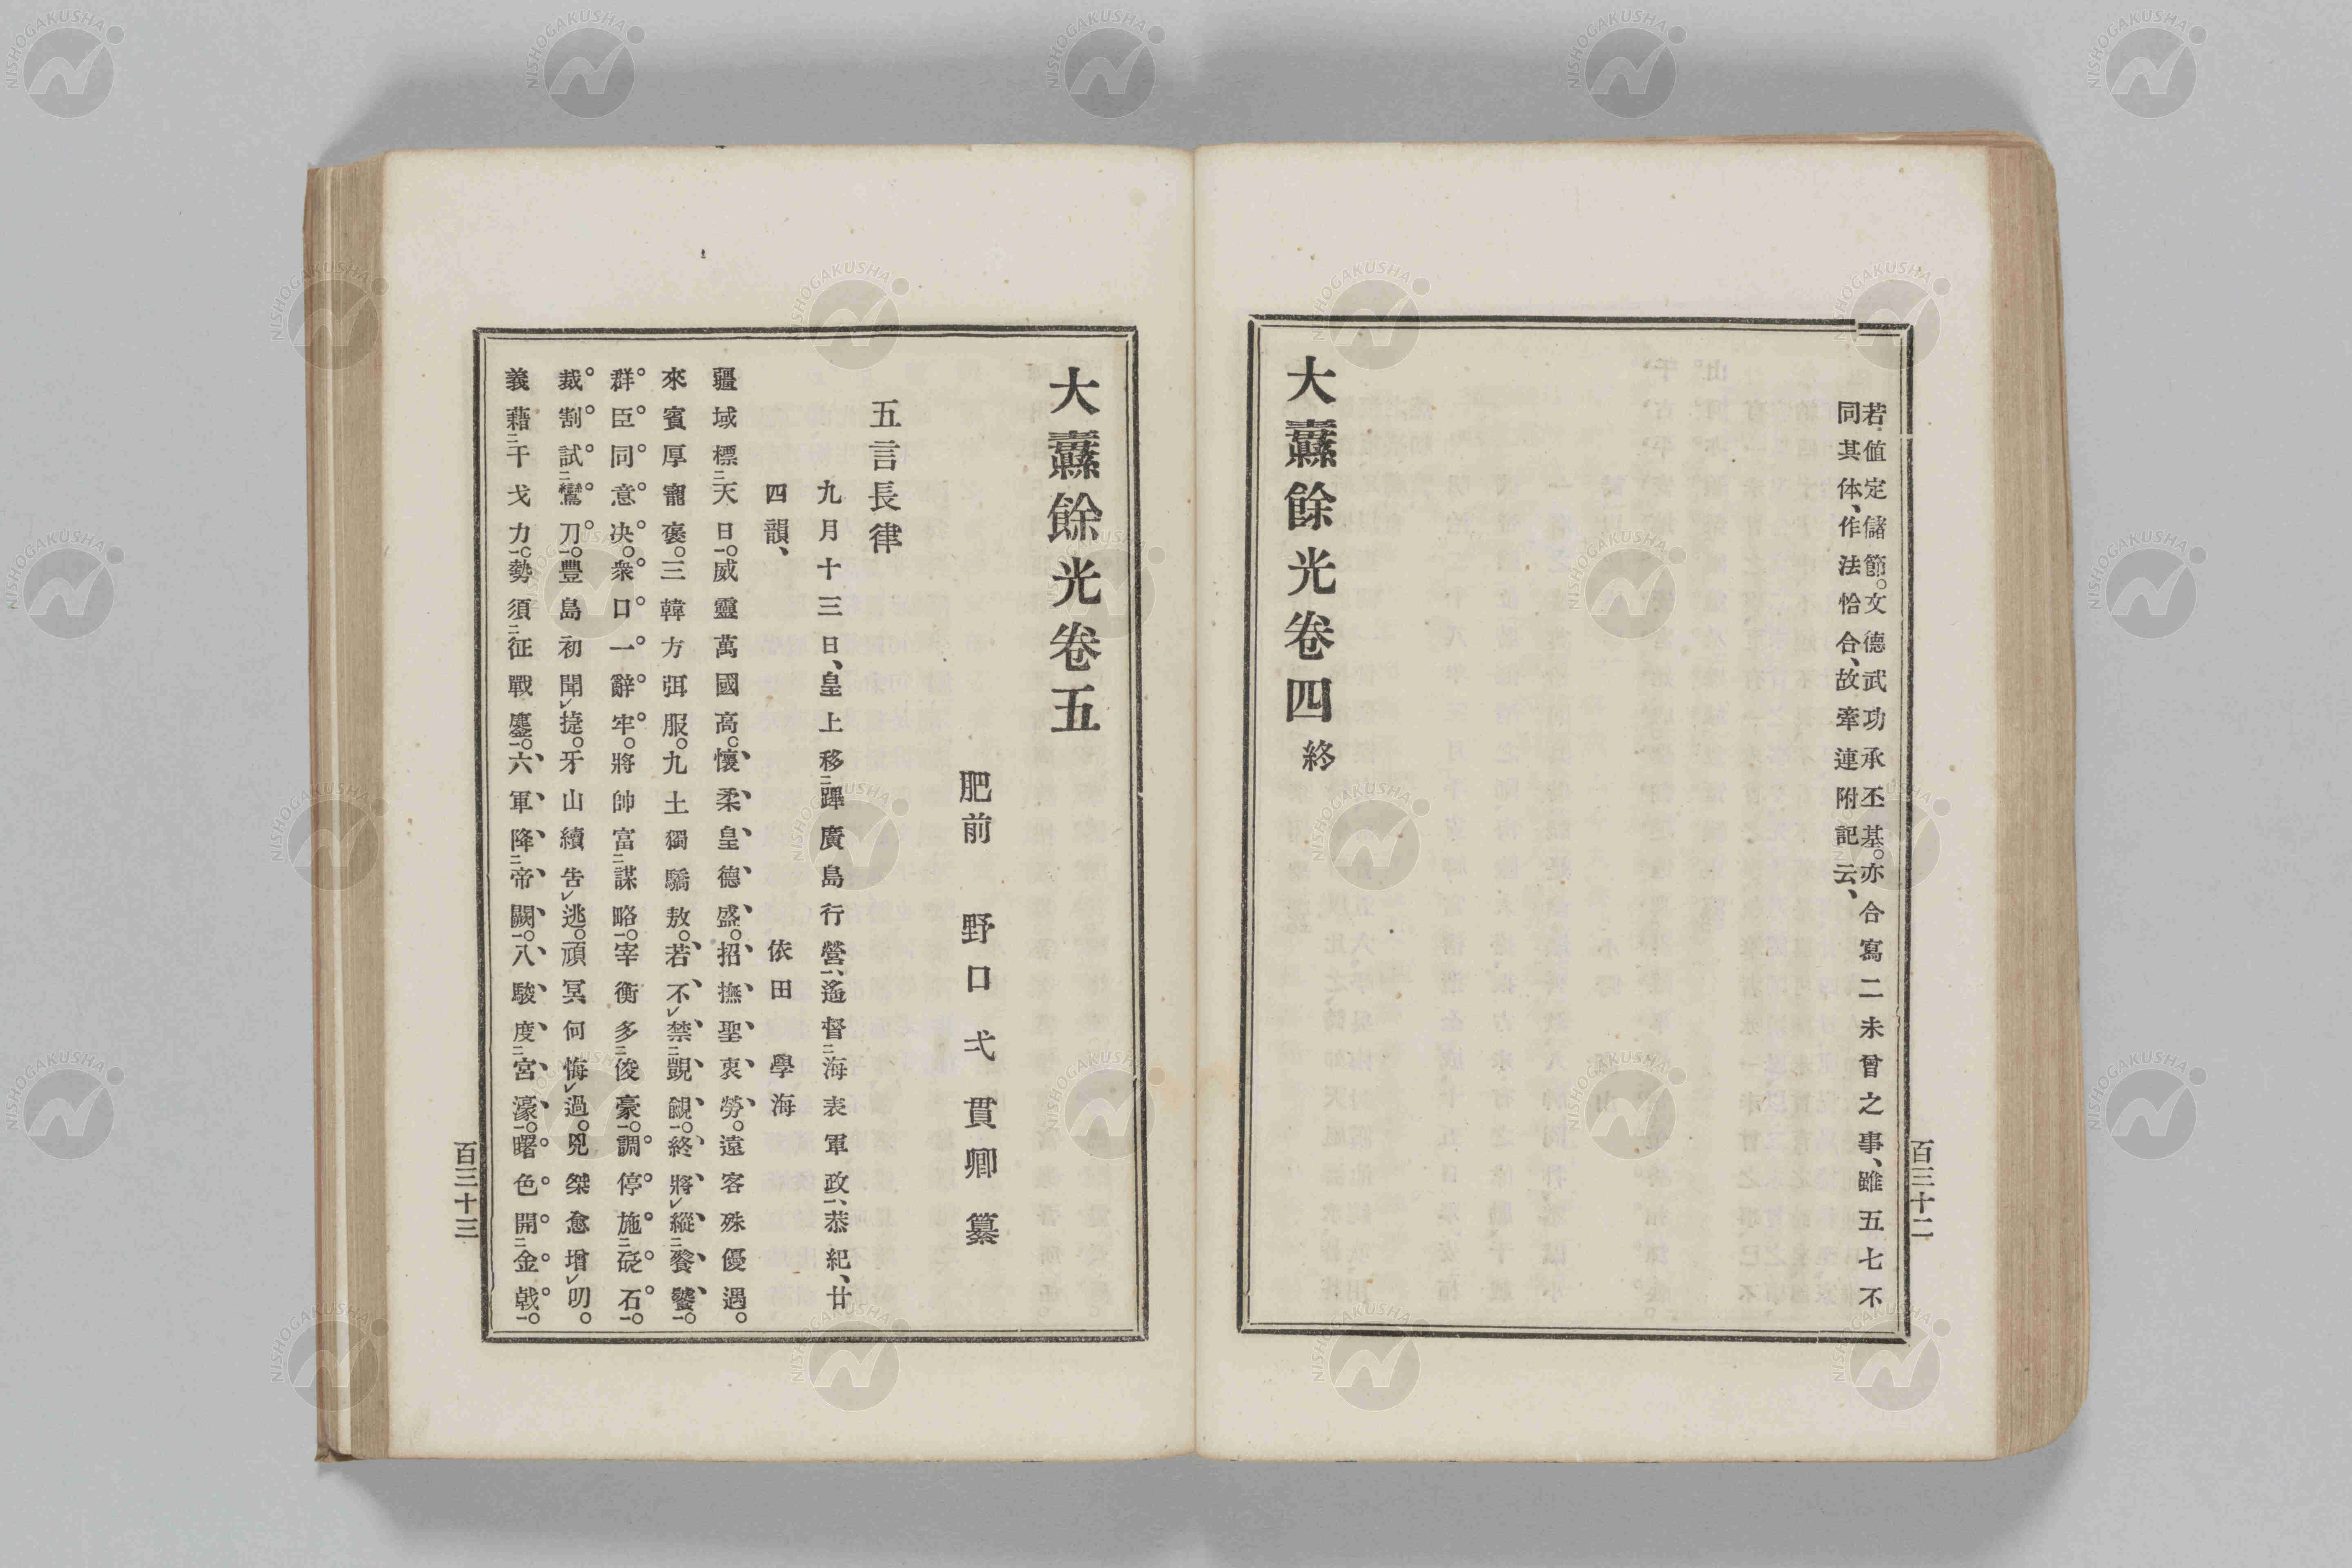 若值定儲節。文德武功承丕基。亦合寫二未曾之事、雖五七不
同其体、作法恰合、故牽連附記云、
大纛餘光卷四 終
百三十二
大纛餘光卷五
肥前 野口弌貫卿纂
五言長律
九月十三日、皇上移二蹕廣島行營一、遙督二海表軍政一、恭紀、廿
四韻、 依田學海
疆域標二天日一。威靈萬國高。懷柔皇德盛。招撫聖衷勞。遠客殊優遇。
來賓厚寵褒。三韓方弭服。九土獨驕敖。若不レ禁二覬覦一。終將レ縱二饕餮一。
群臣同意決。衆口一辭牢。將帥富二謀略一。宰衡多二俊豪一。調停施二砭石一。
裁割試二鸞刀一。豐島初聞レ捷。牙山續告レ逃。頑冥何悔レ過。兇桀愈增レ叨。
義藉二干戈力一。勢須二征戰鏖一。六軍降二帝闕一。八駿度二宮濠一。曙色開二金戟一。
百三十三
NISHOGAKUSHA